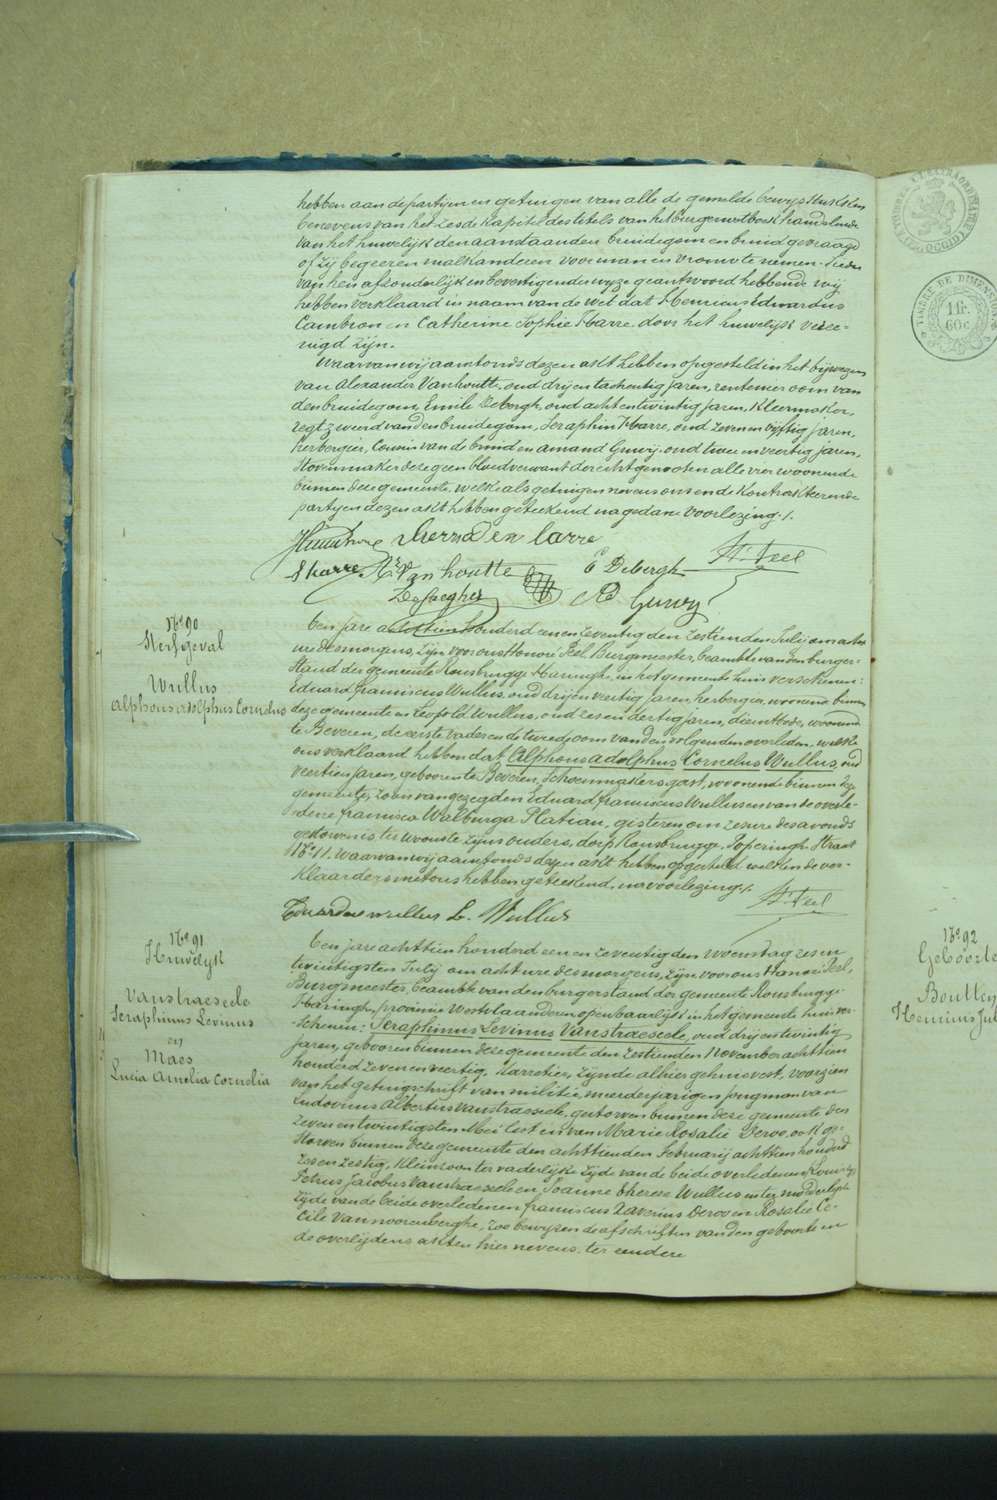 hebben aan de partijen en getuigen van alle de gemelde bewys stukken
benevens van het zesde kapittel des titels van het burger wetboek handelende
van het huwelijk den aanstaanden bruidegom en bruid gevraagd
of zij begeeren malkanderen voor man en vrouw te nemen. Ieder
van hen afzonderlijk en bevestigender wyze geantwoord hebbende wij
hebben verklaard in naam van de wet dat Henricus Eduardus
Cambron en Catherine Sophie Harre door het huwelijk veree-
nigd zijn.
Waarvan wij aamfonds dezen akt hebben opgesteld in het bijwezen
van Alexander Vanhoutte, oud dry en tachentig jaren, rentenier oom van
den bruidegom, Emile Debergh, oud acht en twintig jaren, kleermaker,
regtzweerd van den bruidegom, Seraphin Harre, oud zeven en vyftig jaren,
herbergier, cousin van de bruid en amand Gruwy, oud twee en veertig jaren,
Stovenmaker deze geen bloedverwant der echtgenooten alle vier woonende
binnen deze gemeente, welke als getuigen nevens ons en de kontrakteerende
partyen dezen akt hebben geteekend na gedane voorlezing ./.
S harre Ax Vanhoutte E Debergh H. Feel
Dejaegher A Gruwy
No 90
Sterfgeval
Wullus
Alphonsus Adolphus Cornelus
Een jare achttien honderd een en zeventig den zestienden Julij om acht
ure des morgens, zijn voor ons Honoré Feel, Burgmeester, beambte van den burger-
stand der gemeente Rousbrugge Haringhe, in het gemeente huis verschenen:
Eduard franciscus Wullus, oud dry en veertig jaren, herbergier, woonende binnen
deze gemeente en Leopold Wullus, oud zes en dertig jaren, dienstbode, woonende
te Beveren, de eerste vader en de tweede oom van den volgenden overleden, welke
ons verklaard hebben dat Alphonsus Adolphus Cornelus Wullus, oud
veertien jaren, geboren te Beveren, Schoenmakersgast, woonende binnen deze
gemeente, zoon van gezegden Eduard franciscus Wullus en van de overle-
dene francisca Walburga Platiau, gisteren om zes ure des avonds
gestorven is ter woonste zyns ouders, dorp Rousbrugge, Poperingh Straat
No 11. waarvan wij aamfonds dezen akt hebben opgesteld welken de ver-
klaarders met ons hebben geteekend, na voorlezing ./.
Eduardus wullus L. Wullus H. Feel
No 91
Huwelijk
Vanstraeseele
Seraphinus Levinus
en
Maes
Lucia Amelia Cornelia
Een jare achttien honderd een en zeventig den woensdag zes en
twintigsten Julij om acht ure des morgens, zijn voor ons Honoré Feel,
Burgmeester, beambte van den burgerstand der gemeente Rousbrugge
Haringhe, provincie Westvlaanderen openbaarlijk in het gemeente huis ver-
schenen: Seraphinus Levinus Vanstraeseele, oud dry en twintig
jaren, geboren binnen deze gemeente den zestienden November achttien
honderd zeven en veertig, Karretier, zynde alhier gehuisvest, voorzien
van het getuigschrift van militie, meerderjarigen jongman van
Ludovicus Albertus Vanstraeseele, gestorven binnen deze gemeente den
zeven en twintigsten Mei lest en van Marie Rosalie Deroo, ook ge-
storven binnen deze gemeente den achttienden Februarij achttien honderd
zes en zestig, kleinzoon ter vaderlijke zijde van de beide overledenen
Petrus Jacobus Vanstraeseele en Joanne Therese Wullus en ter moederlijke
zijde van de beide overledenen franciscus Xaverius Deroo en Rosalie Ce-
cile Vannoorenberghe, zoo bewyzen de afschriften van den geboorte en
de overlijdens akten hier nevens. ter eendere
TIMBRE DE DIMENSION
1 fr.
60 c.
No 92
Geboorte
Henricus Jul